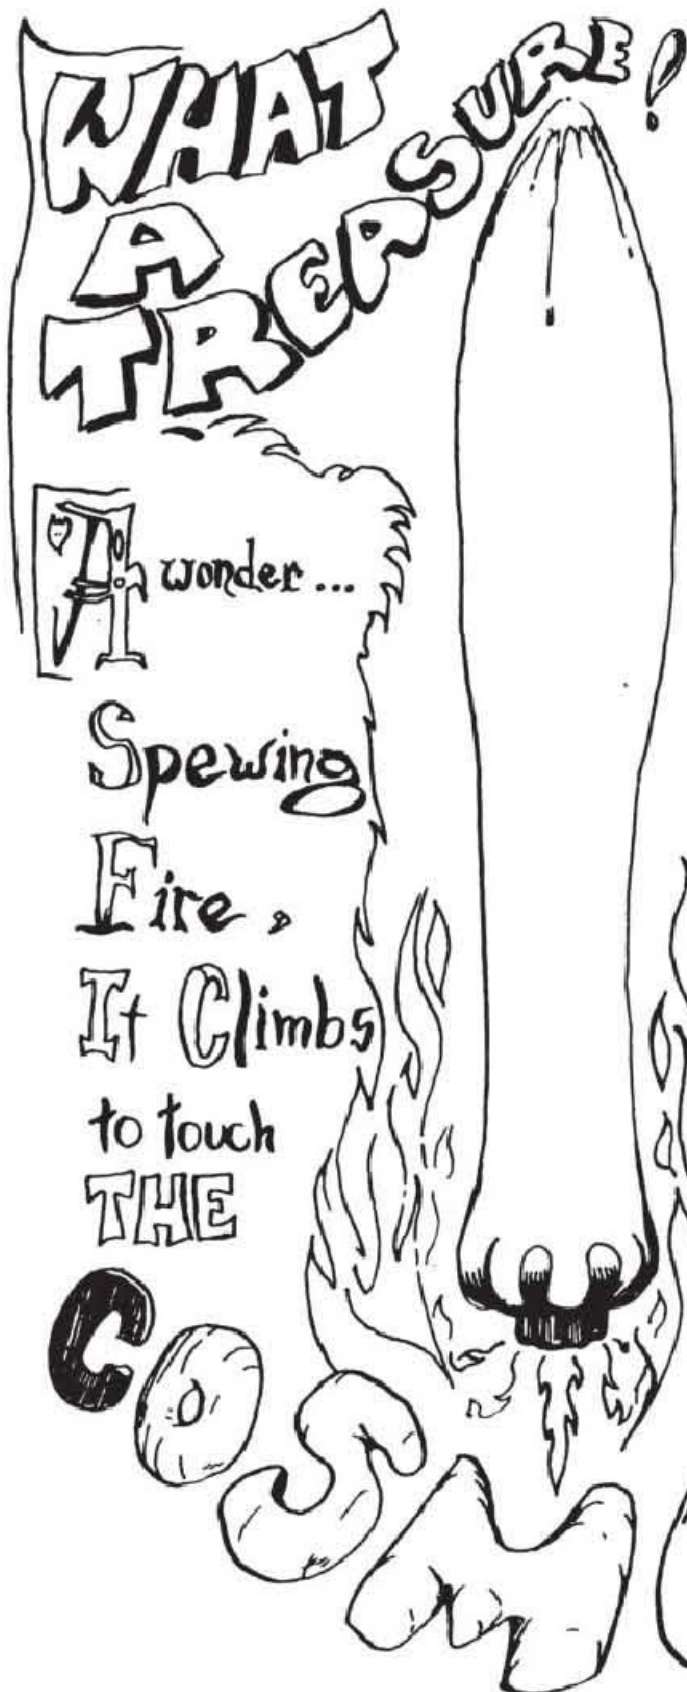 WHAT
A
TREASURE!
A wonder...
Spewing
Fire,
It Climbs
to touch
THE
COSM